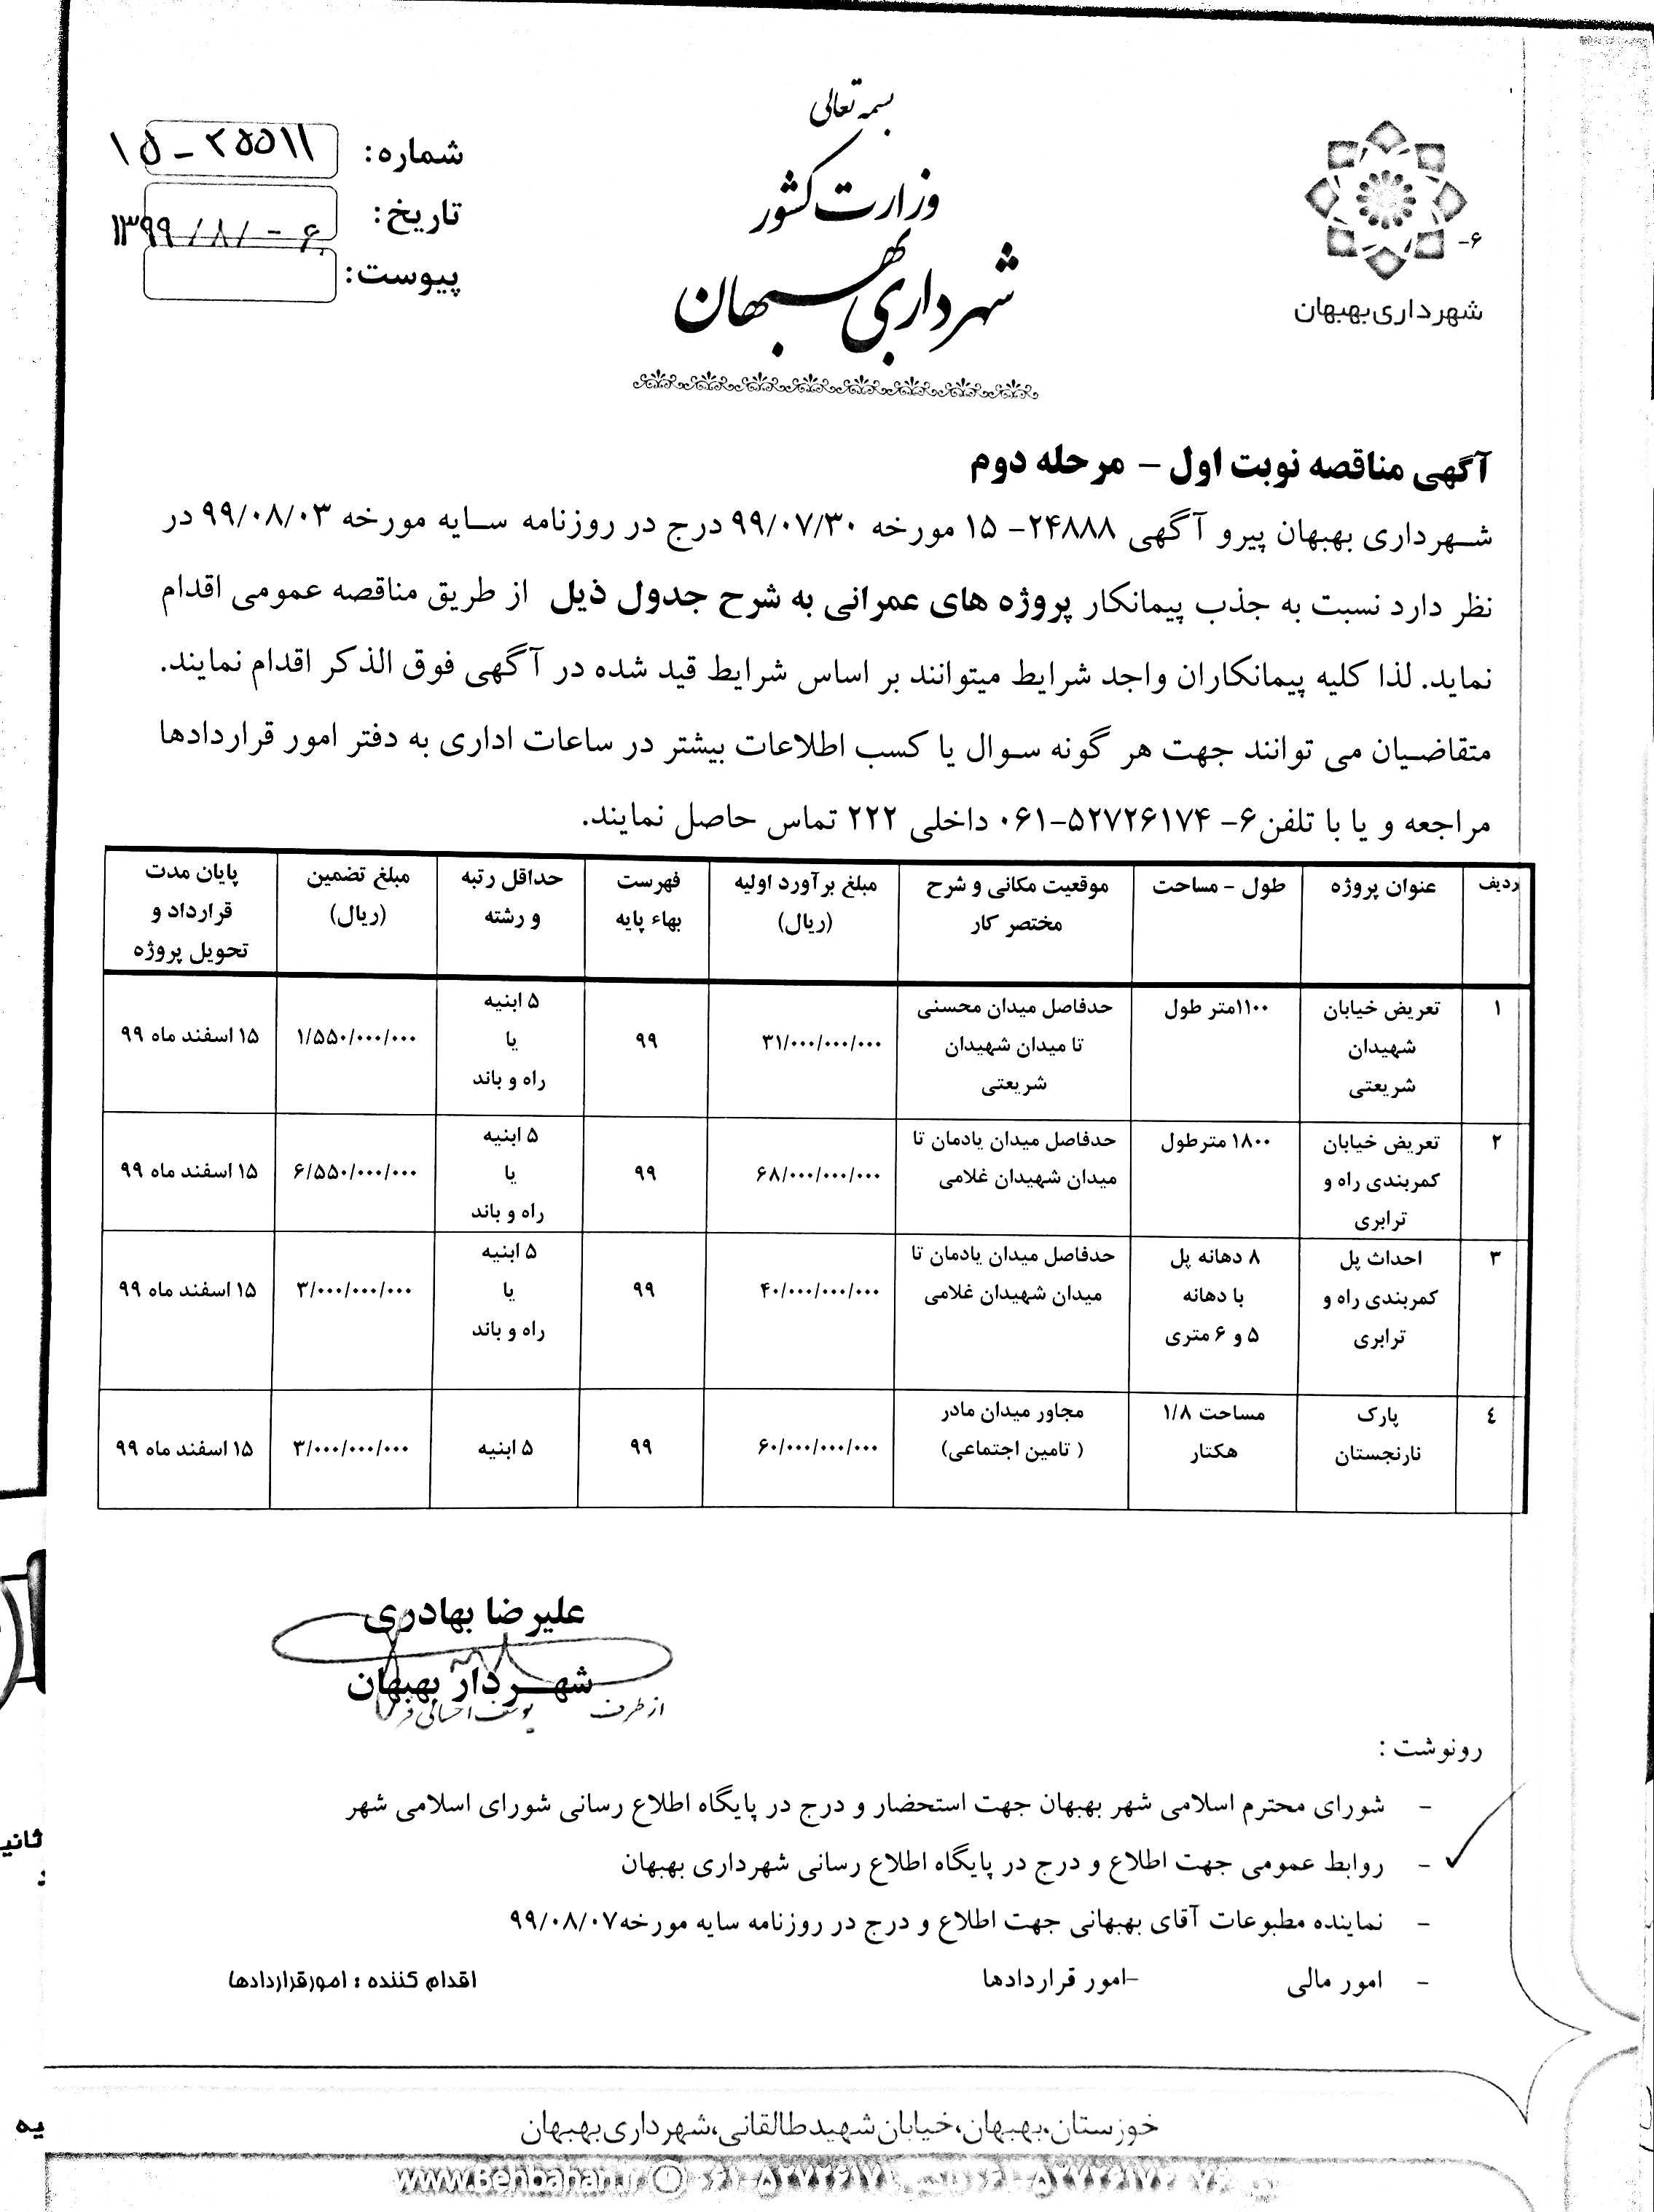 بسمه تعالی
وزارت کشور
شهرداری بهبهان
شهرداری بهبهان
۶-
شماره: ۲۵۵۱۱ - ۱۵
تاریخ: ۱۳۹۹/۸/۰۶
پیوست:
آگهی مناقصه نوبت اول – مرحله دوم
شهرداری بهبهان پیرو آگهی ۲۴۸۸۸- ۱۵ مورخه ۹۹/۰۷/۳۰ درج در روزنامه سایه مورخه ۹۹/۰۸/۰۳ در
نظر دارد نسبت به جذب پیمانکار پروژه های عمرانی به شرح جدول ذیل از طریق مناقصه عمومی اقدام
نماید. لذا کلیه پیمانکاران واجد شرایط میتوانند بر اساس شرایط قید شده در آگهی فوق الذکر اقدام نمایند.
متقاضیان می توانند جهت هر گونه سوال یا کسب اطلاعات بیشتر در ساعات اداری به دفتر امور قراردادها
مراجعه و یا با تلفن۶- ۵۲۷۲۶۱۷۴-۰۶۱ داخلی ۲۲۲ تماس حاصل نمایند.
ردیف عنوان پروژه طول - مساحت موقعیت مکانی و شرح مبلغ برآورد اولیه فهرست حداقل رتبه مبلغ تضمین پایان مدت
مختصر کار (ریال) بهاء پایه و رشته (ریال) قرارداد و
تحویل پروژه
۱ تعریض خیابان ۱۱۰۰متر طول حدفاصل میدان محسنی ۵ ابنیه
شهیدان تا میدان شهیدان ۳۱/۰۰۰/۰۰۰/۰۰۰ ۹۹ یا ۱/۵۵۰/۰۰۰/۰۰۰ ۱۵ اسفند ماه ۹۹
شریعتی شریعتی راه و باند
۲ تعریض خیابان ۱۸۰۰ مترطول حدفاصل میدان یادمان تا ۵ ابنیه
کمربندی راه و میدان شهیدان غلامی ۶۸/۰۰۰/۰۰۰/۰۰۰ ۹۹ یا ۶/۵۵۰/۰۰۰/۰۰۰ ۱۵ اسفند ماه ۹۹
ترابری راه و باند
۳ احداث پل ۸ دهانه پل حدفاصل میدان یادمان تا ۵ ابنیه
کمربندی راه و با دهانه میدان شهیدان غلامی ۴۰/۰۰۰/۰۰۰/۰۰۰ ۹۹ یا ۳/۰۰۰/۰۰۰/۰۰۰ ۱۵ اسفند ماه ۹۹
ترابری ۵ و ۶ متری راه و باند
٤ پارک مساحت ۱/۸ مجاور میدان مادر
نارنجستان هکتار ( تامین اجتماعی) ۶۰/۰۰۰/۰۰۰/۰۰۰ ۹۹ ۵ ابنیه ۳/۰۰۰/۰۰۰/۰۰۰ ۱۵ اسفند ماه ۹۹
علیرضا بهادری
شهردار بهبهان
از طرف یوسف احسانی فر
رونوشت :
- شورای محترم اسلامی شهر بهبهان جهت استحضار و درج در پایگاه اطلاع رسانی شورای اسلامی شهر
- روابط عمومی جهت اطلاع و درج در پایگاه اطلاع رسانی شهرداری بهبهان
- نماینده مطبوعات آقای بهبهانی جهت اطلاع و درج در روزنامه سایه مورخه۹۹/۰۸/۰۷
- امور مالی -امور قراردادها اقدام کننده : امورقراردادها
خوزستان،بهبهان،خیابان شهیدطالقانی،شهرداری بهبهان
www.Behbahan.ir